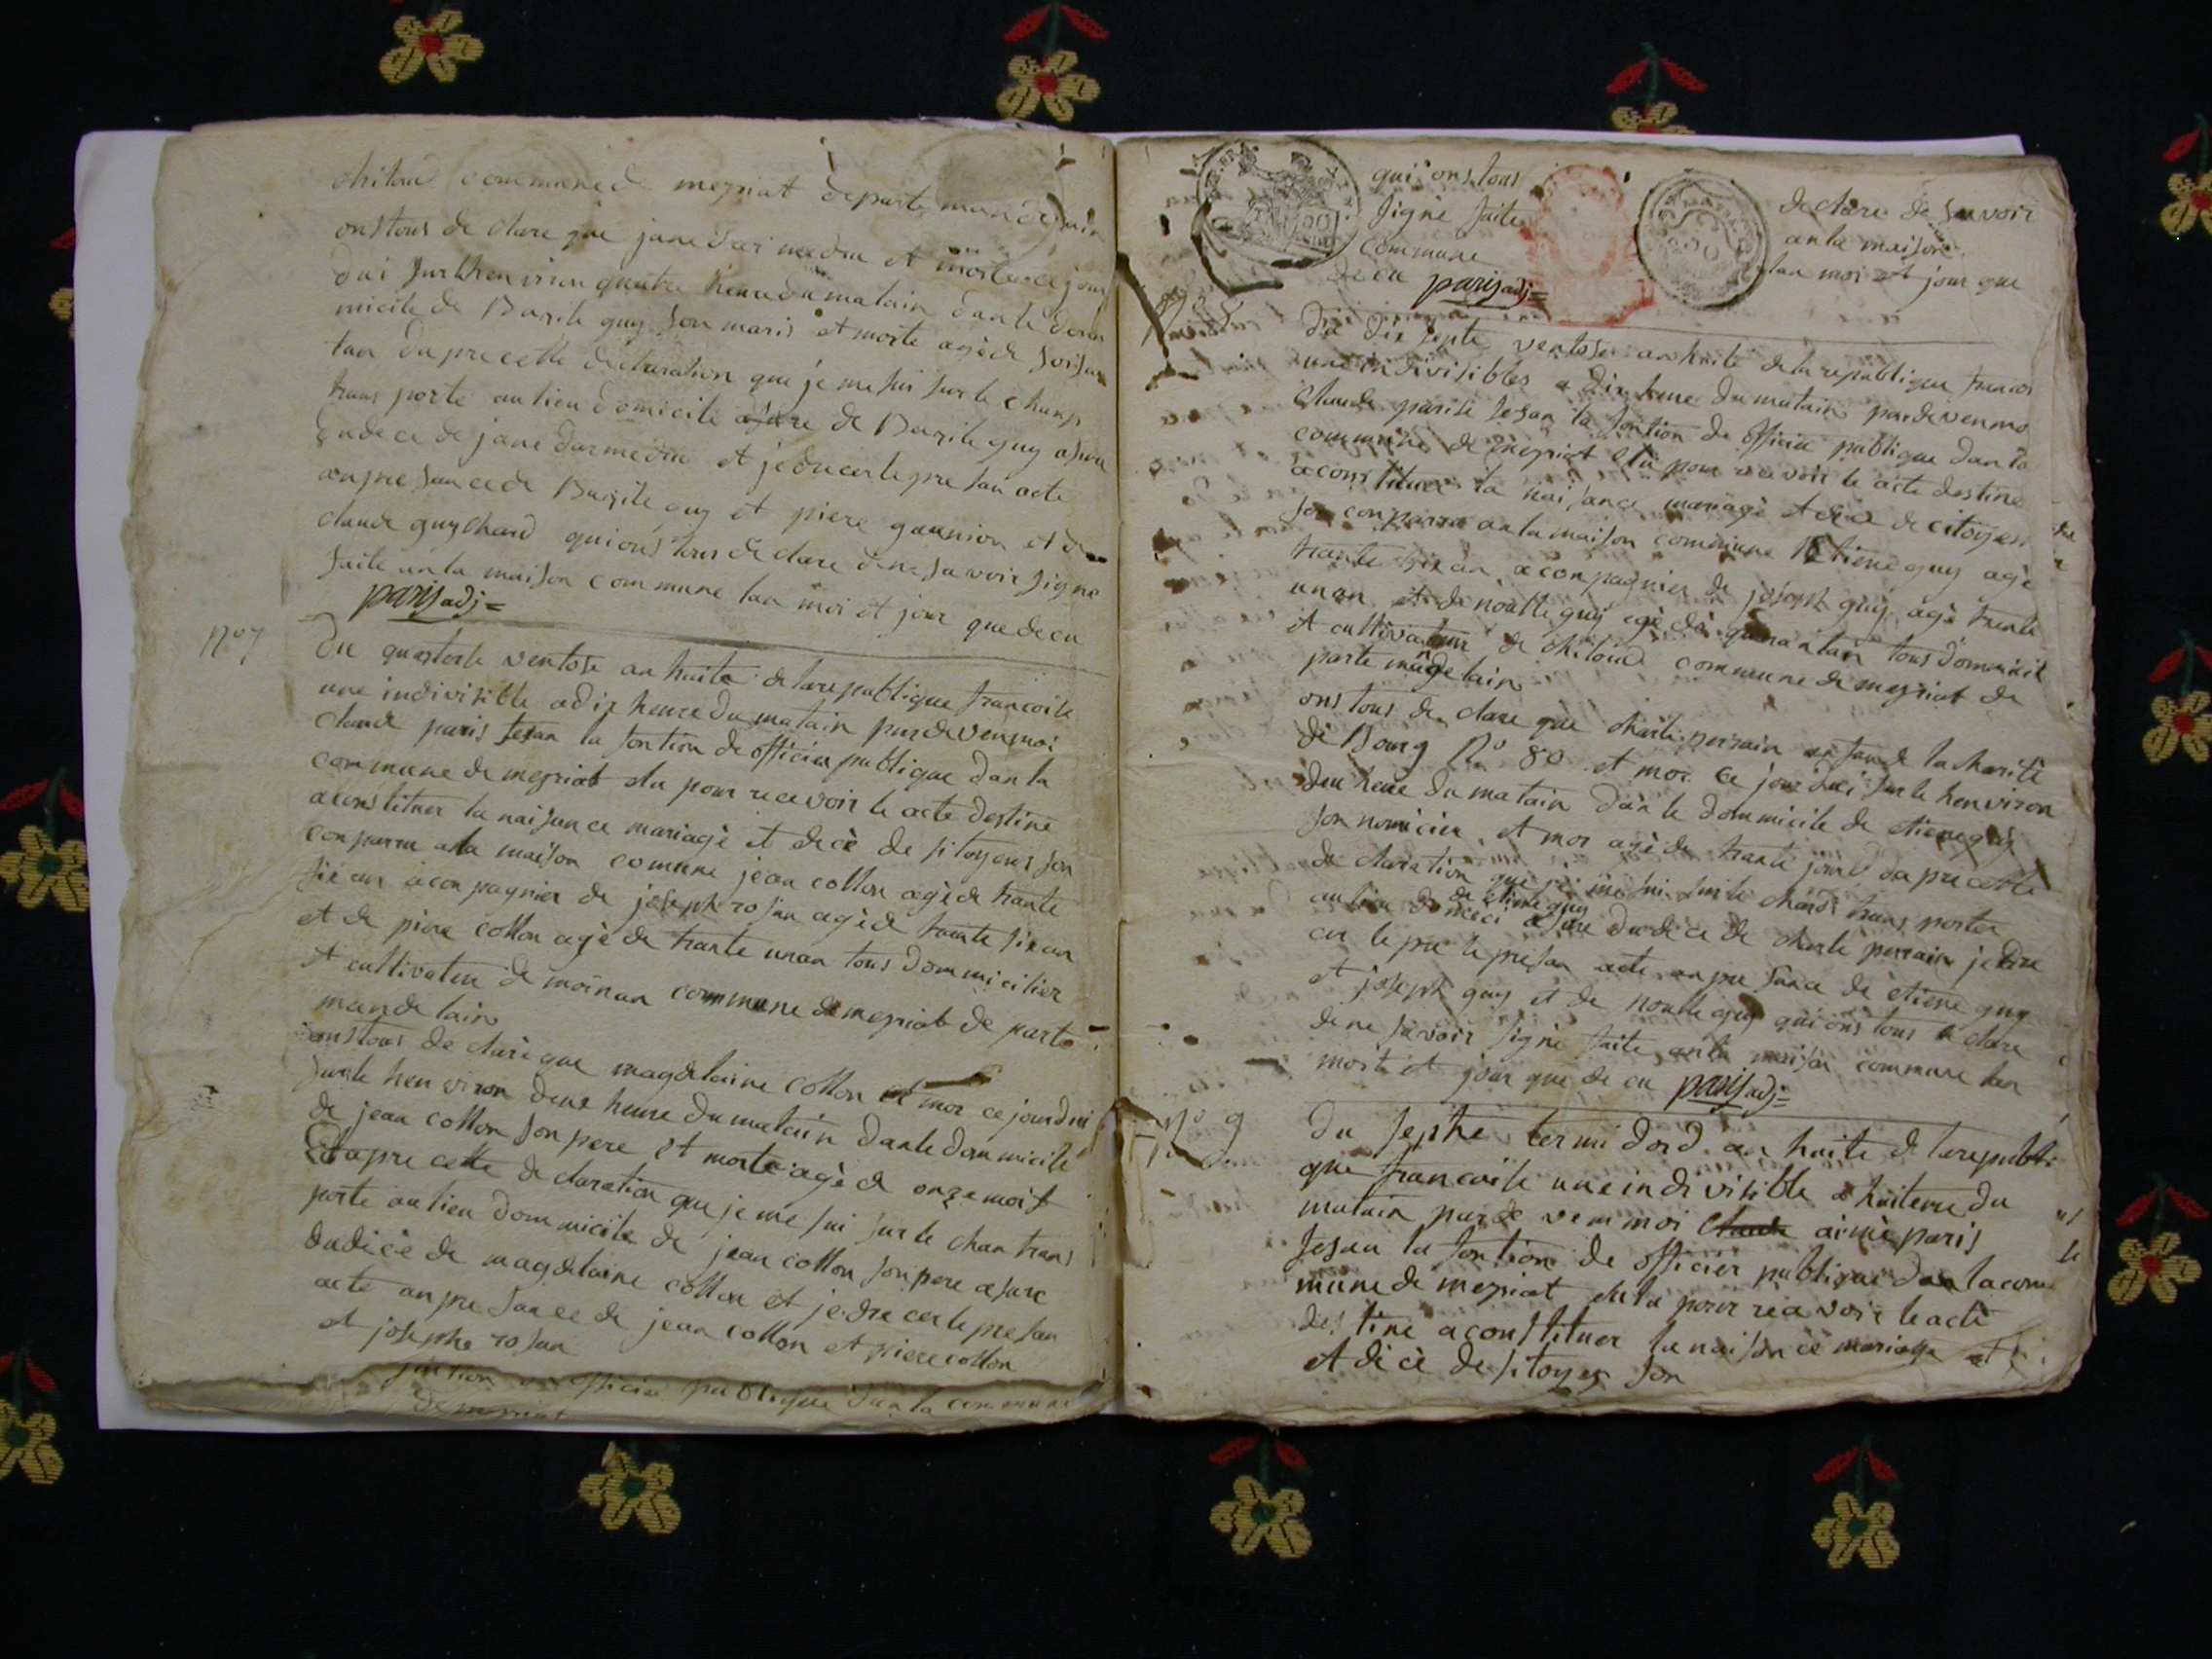 chiloud commune de mepriat departe man de lain
ons tous de clare que jane dar medru et morte ce jour
dui sur lhenviron quatre heure du matain dan le dom
micile de Bazile guy son maris et morte agè de soisan
tan da pre cette declaration que je me suis sur le champ
trans porte au lieu domicile de Bazile guy asure
du dece de jane dar medru et je dre cer le pre san acte
an pre sance de Bazile guy et piere gaunion et de
claude guychard qui ons tous de clare de ne sa voir signe
faite an la maison commune lan moi et jour que de cu
paris adj=
N° 7
Du quatorse ventose an huite de la re publique francoise
une indivisible a dix heure du matain par de ven moi
claude paris fesan la fontion de officier publique dan la
commune de mepriat elu pour recevoir le acte destine
a constituer la naisance mariage et dece de sitoyens son
conparru a la maison comune jean collon agè de trante
six an acon pagnier de joseph rosan agè de trante six an
et de piere collon agè de trante un an tous dommicilier
et cultivateur de moinan commune de mepriat de parte
man de lain
ons tous de clare que magdelaine collon et mor ce jourdui
sur le hen viron deux heure du matain dan le dommicile
de jean collon son pere et morte agè de onze mois
Et dapre cette de claration que je me sui sur le chan trans
porte au lieu dommicile de jean collon son pere asure
du dicè de magdelaine collon et je dre cer le pre san
acte an pre sance de jean collon et piere collon
et josephe rosan
fontion de officier publique dan la commune
de mepriat
qui ons tous
signe faite
commune
de cu paris adj=
de clare de savoir
an la maison
lan moi et jour que
Du dix septe ventose an huite de la republique francois
une indivisibles a dix heure du matain par de ven mo
Claude paris fesan la fontion de officier publique dan la
commune de mepriat elu pour recevoir le acte destine
a constituer la naisance mariage et dece de citoyen
son conparru an la maison commune Etiene guy agè
trante six an aconpagnier de joseph guy agè trante
un an et de noelle guy agè de quarantan tous dommicil
et cultivateur de chiloud commune de mepriat de
parte man de lain
ons tous de clare que charle perrain anfan de la charité
de Bourg N° 80 et mor ce jour dui sur le henviron
deu heure du matain dan le dommicile de etiene guy
son nouricier et mor agè de trante jour dapre cette
de claration que je me sui sur le chand trans porter
au lieu domici de etiene guy asure du dice de charle perrain je dre
cer le pre le presan acte an pre sance de etiene guy
et joseph guy et de noelle guy qui ons tous de clare
de ne savoir signe faite an la maison commune lan
mois et jour que de cu paris adj=
N° 9
Du septhe termi dord an huite de la republi
que francoise une indivisible a huiteure du
matain par de ven moi claude aimè paris
fesan la fontion de officier publique dan la com
mune de mepriat elu pour recevoir le acte
des tine a constituer la naisance mariage et
et dicè de sitoyen son